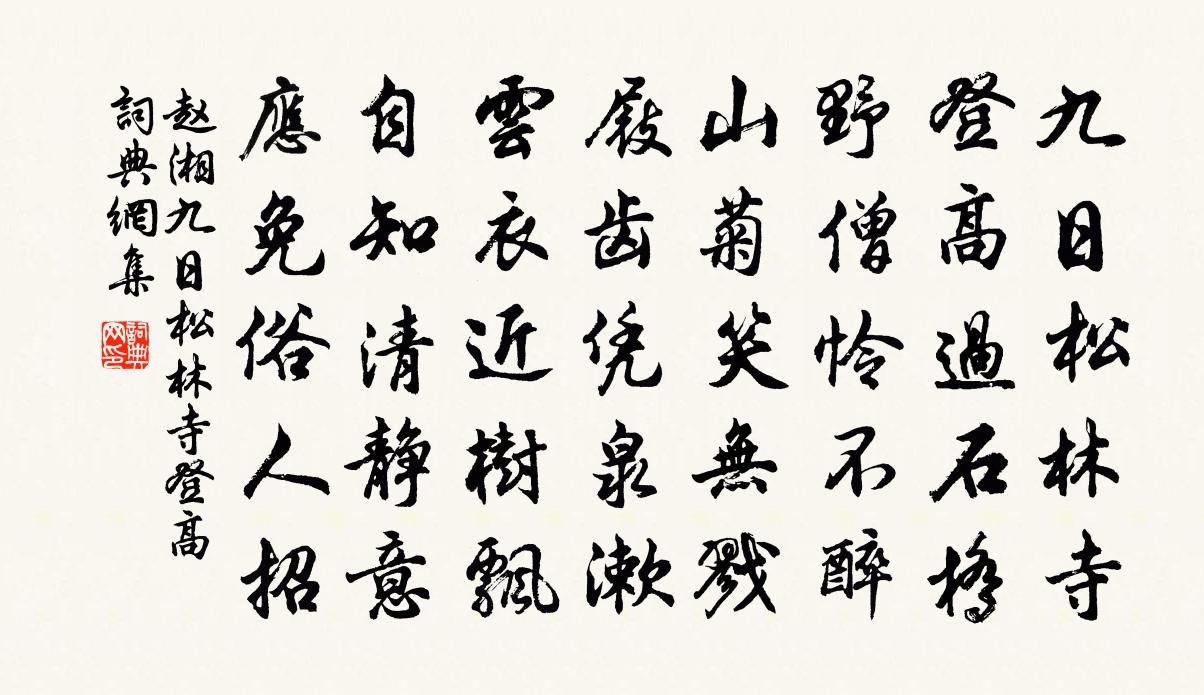 九日松林寺
登高過石橋
野僧怜不醉
山菊笑無戮
屐齿凭泉漱
雲衣近樹飄
自知清静意
應免俗人招
赵湘九日松林寺登高
詞典網集
詞典网印